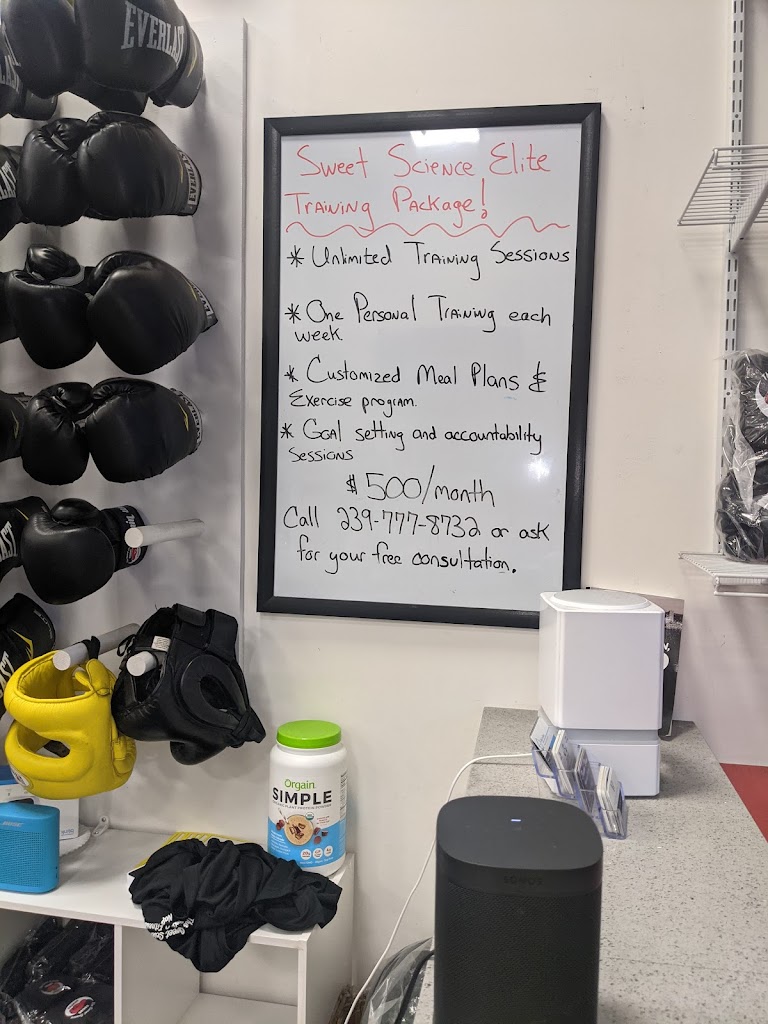 EVERLAST
EVERLAST
Sweet Science Elite
Training Package!
* Unlimited Training Sessions
* One Personal Training each
week.
* Customized Meal Plans &
Exercise program.
* Goal setting and accountability
sessions
$500/month
Call 239-777-8732 or ask
for your free consultation.
Orgain
SIMPLE
SONOS